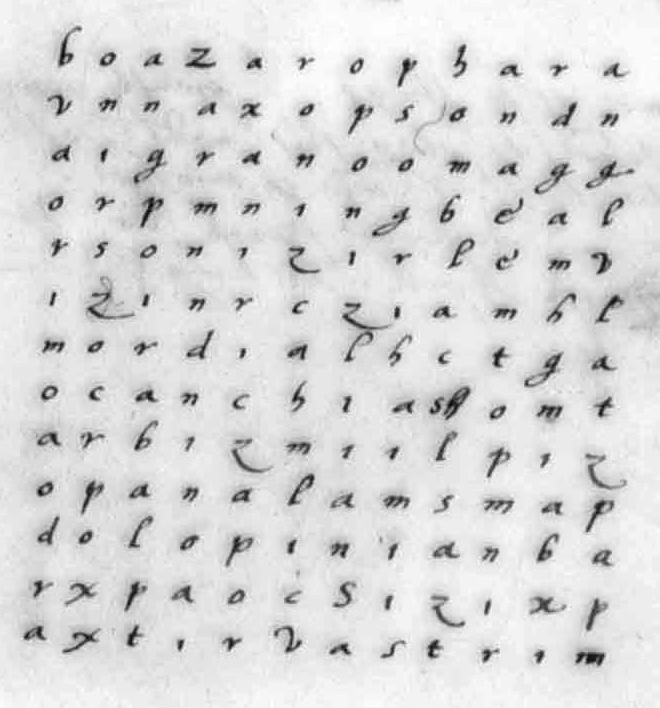 b o a z a r o p h a r a
v n n a x o p s o n d n
a i g r a n o o m a g g
o r p m n i n g b e a l
r s o n i z i r l e m v
i z i n r c z i a m h l
m o r d i a l h c t g a
o c a n c h i a s o m t
a r b i z m i i l p i z
o p a n a l a m s m a p
d o l o p i n i a n b a
r x p a o c s i z i x p
a x t i r v a s t r i m